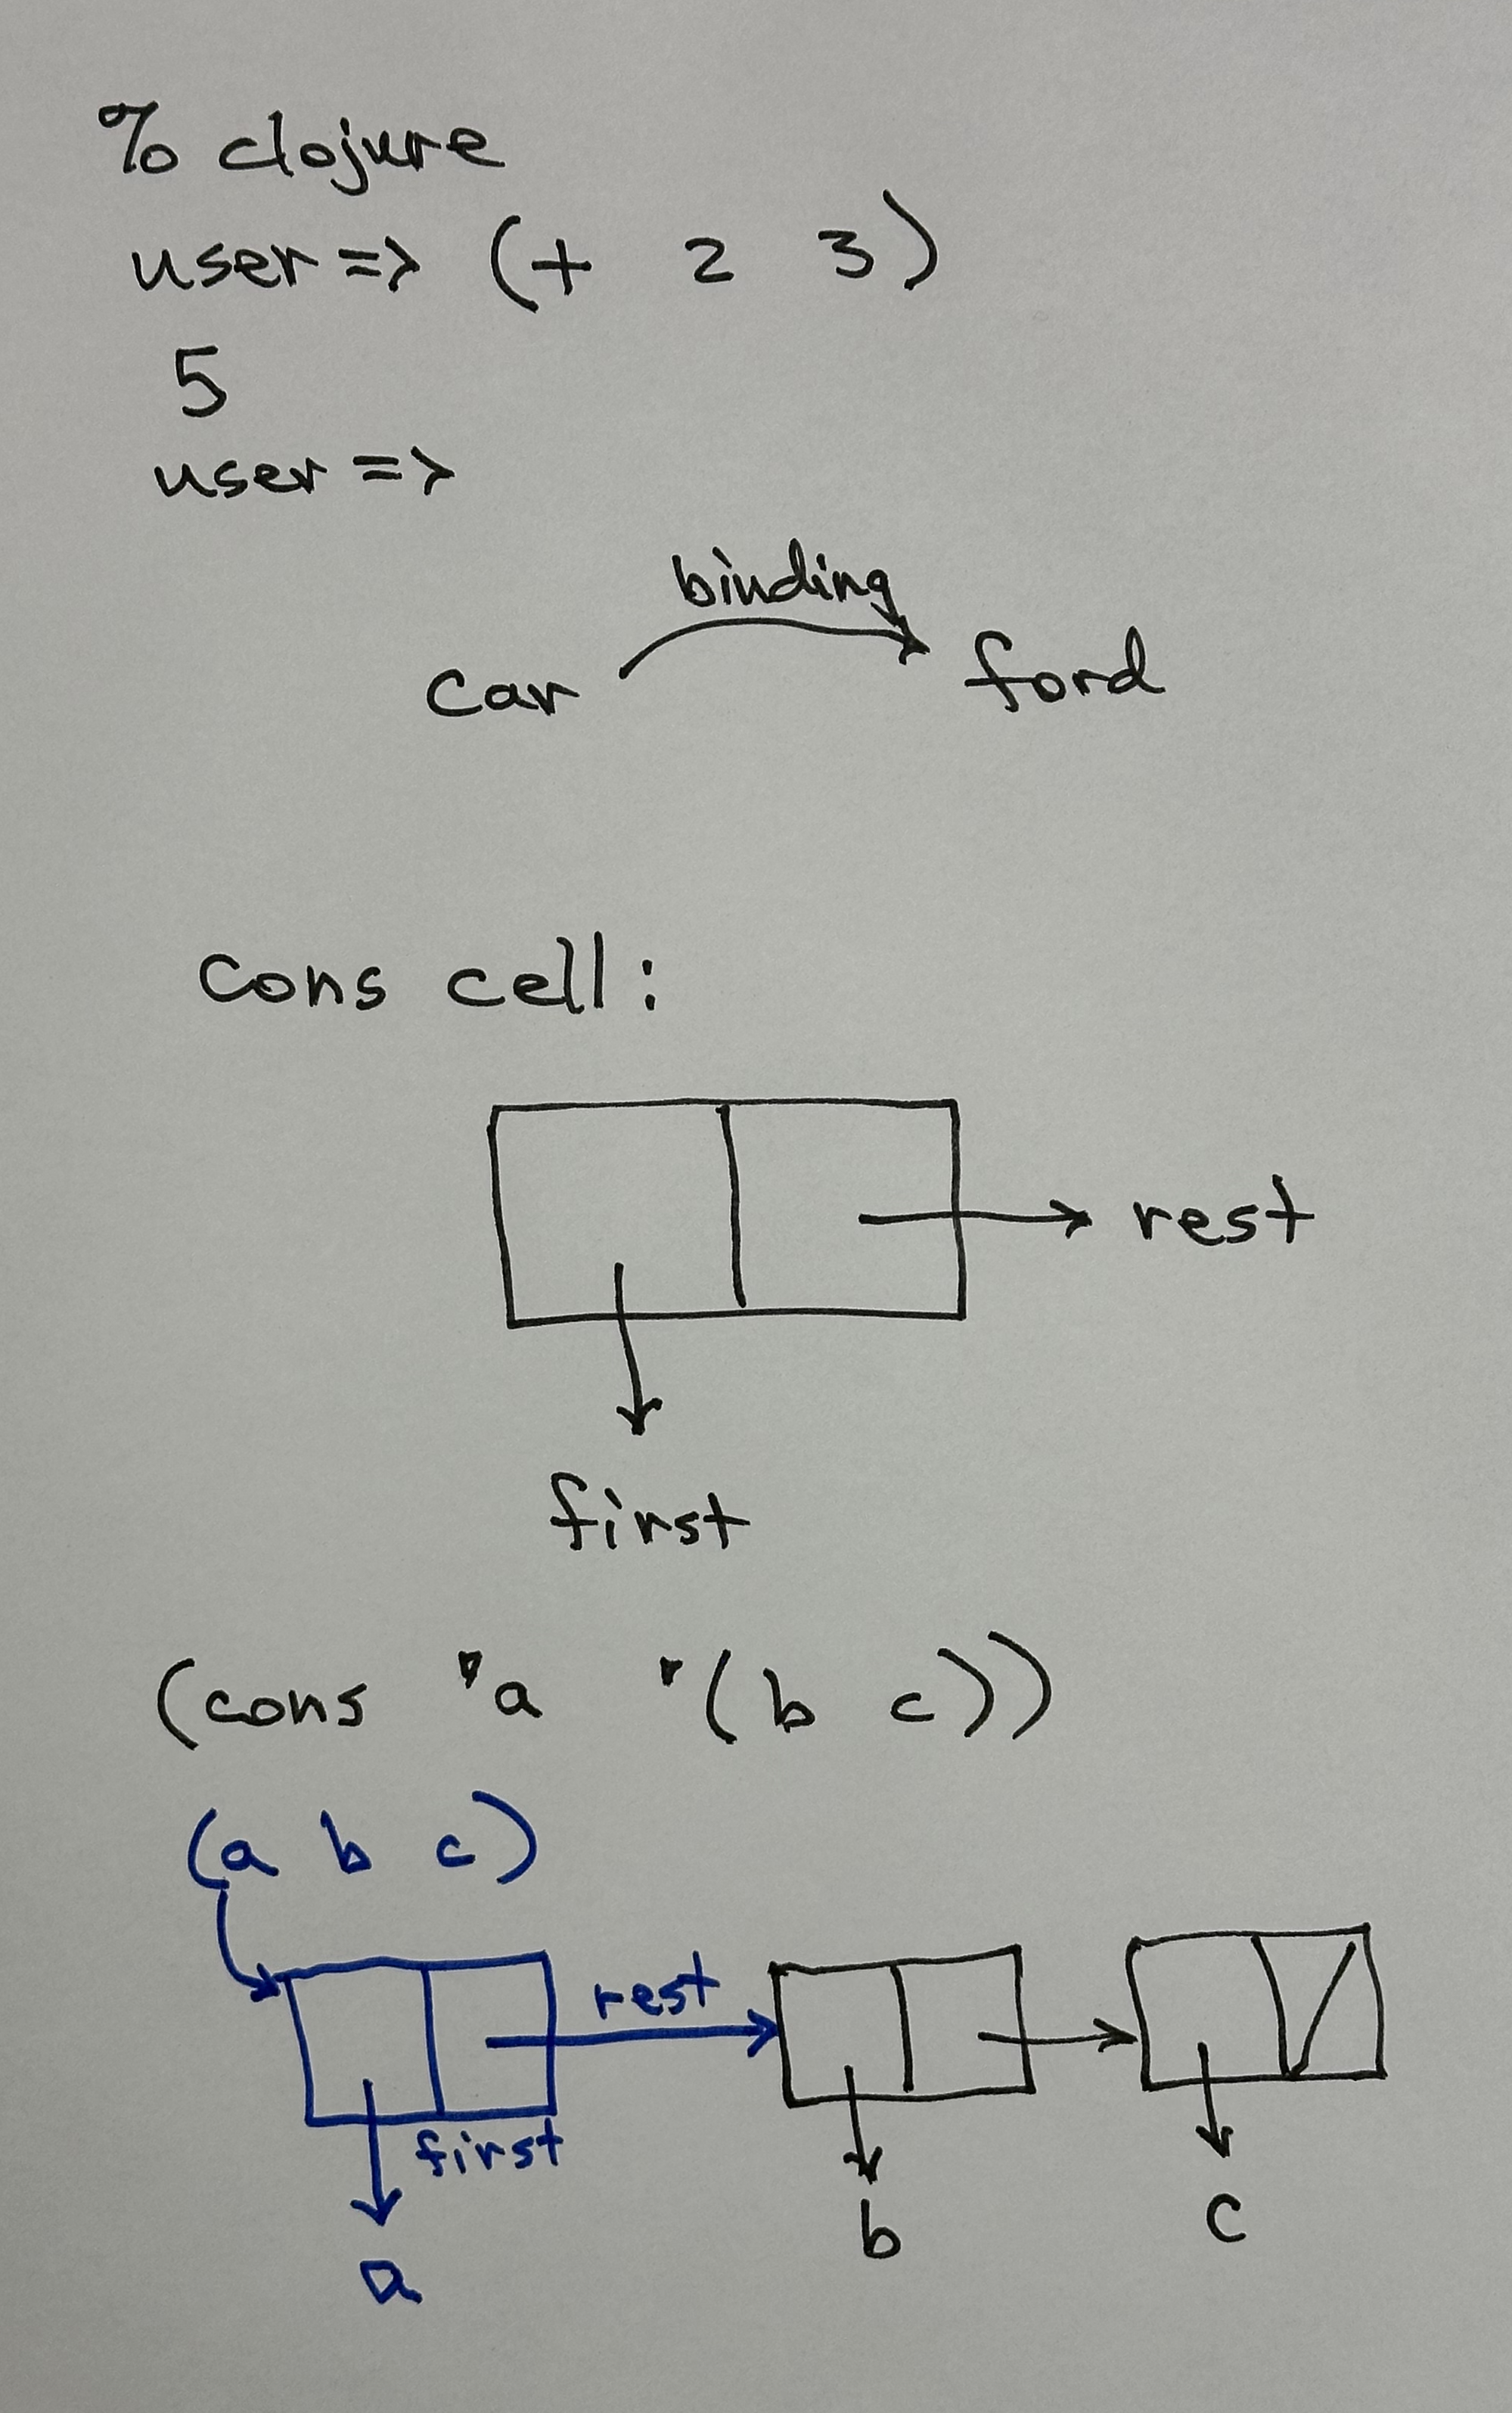 % clojure
user => (+ 2 3)
5
user =>
binding
car ford
cons cell:
rest
first
(cons 'a '(b c))
(a b c)
rest
first
a b c